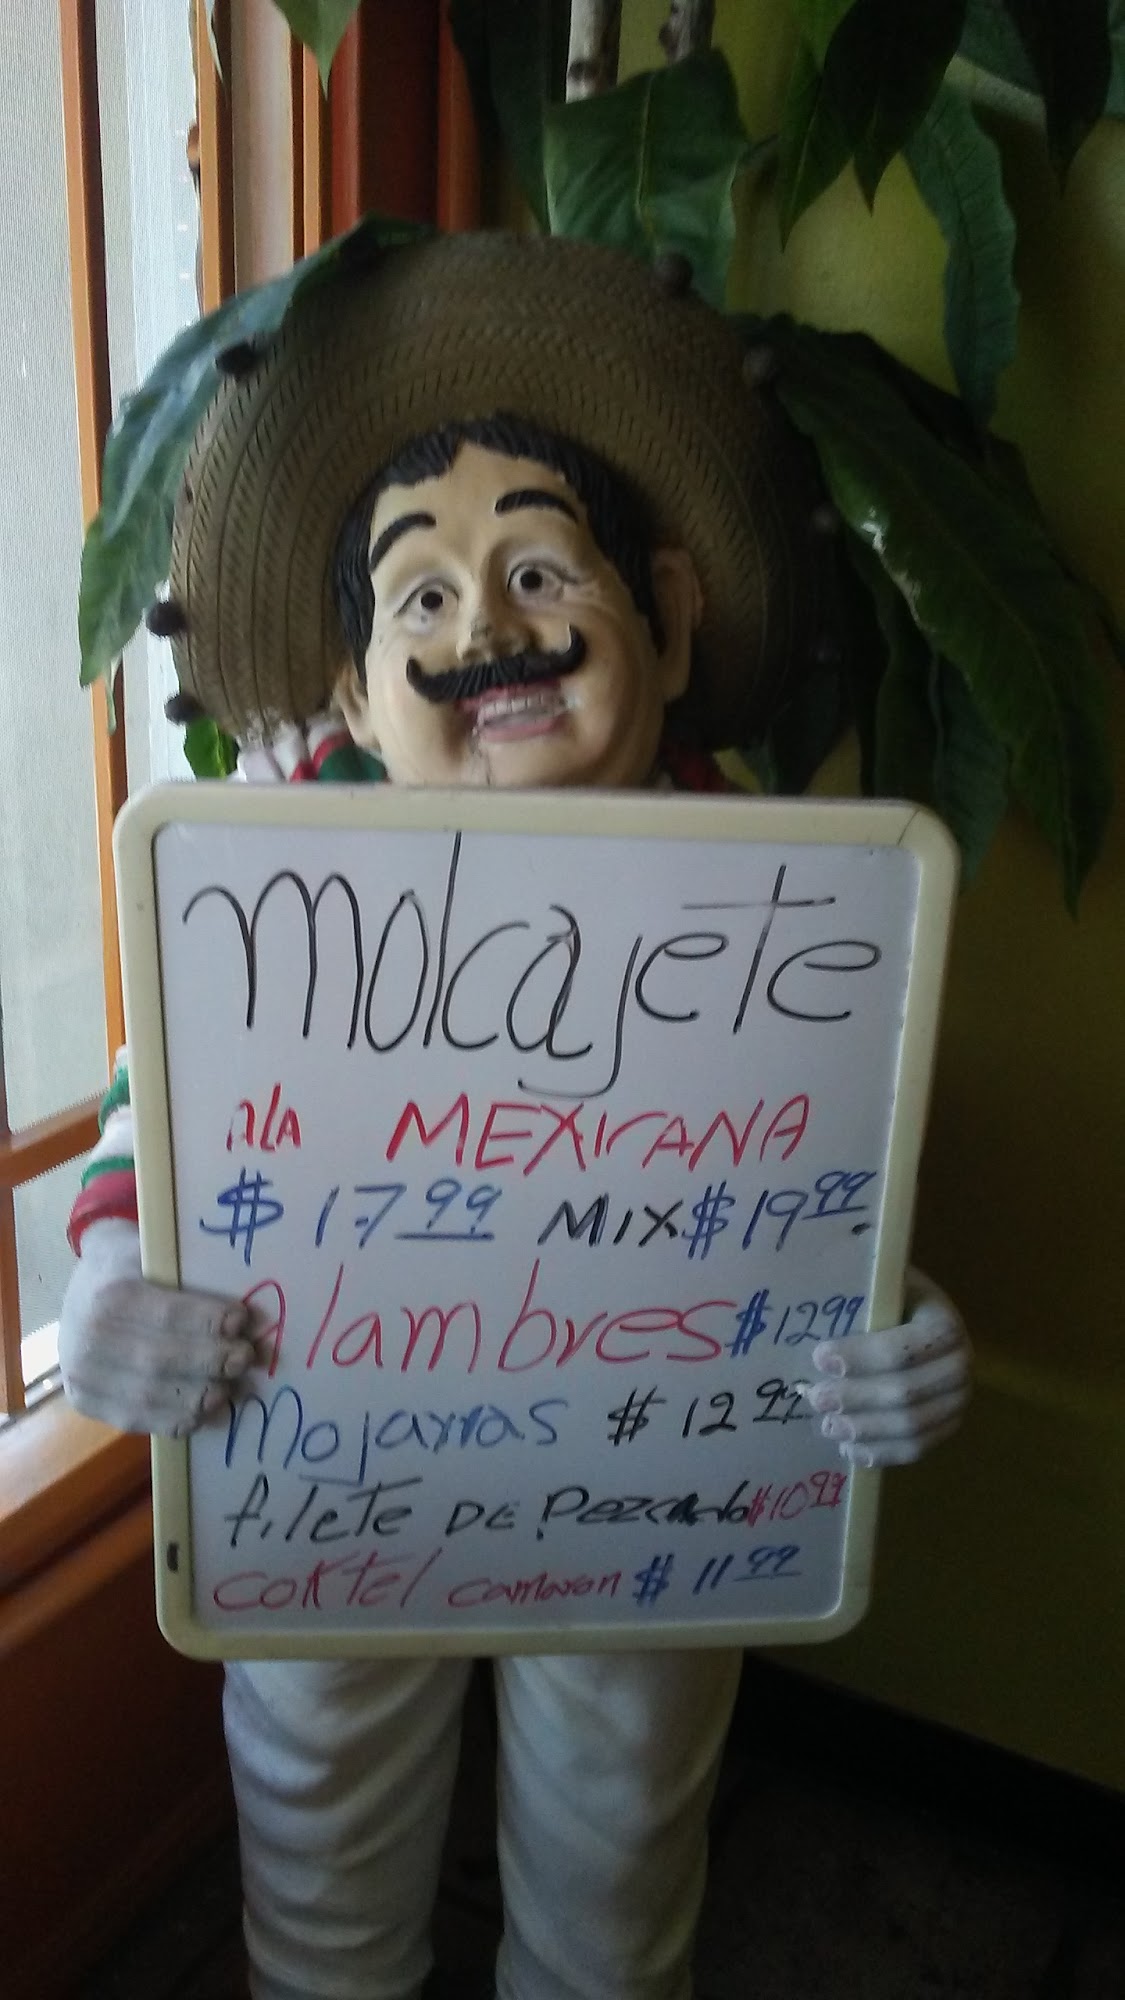 Molcajete
ala MEXICANA
$ 17.99 MIX $ 19.99
Alambres $12.99
Mojarras $ 12.99
filete DE Pezcado $10.99
coktel camaron $ 11.99